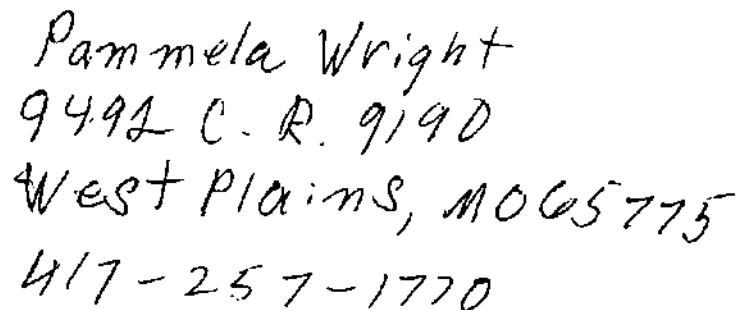 Pammela Wright
9492 C.R. 9190
West Plains, MO 65775
417-257-1770